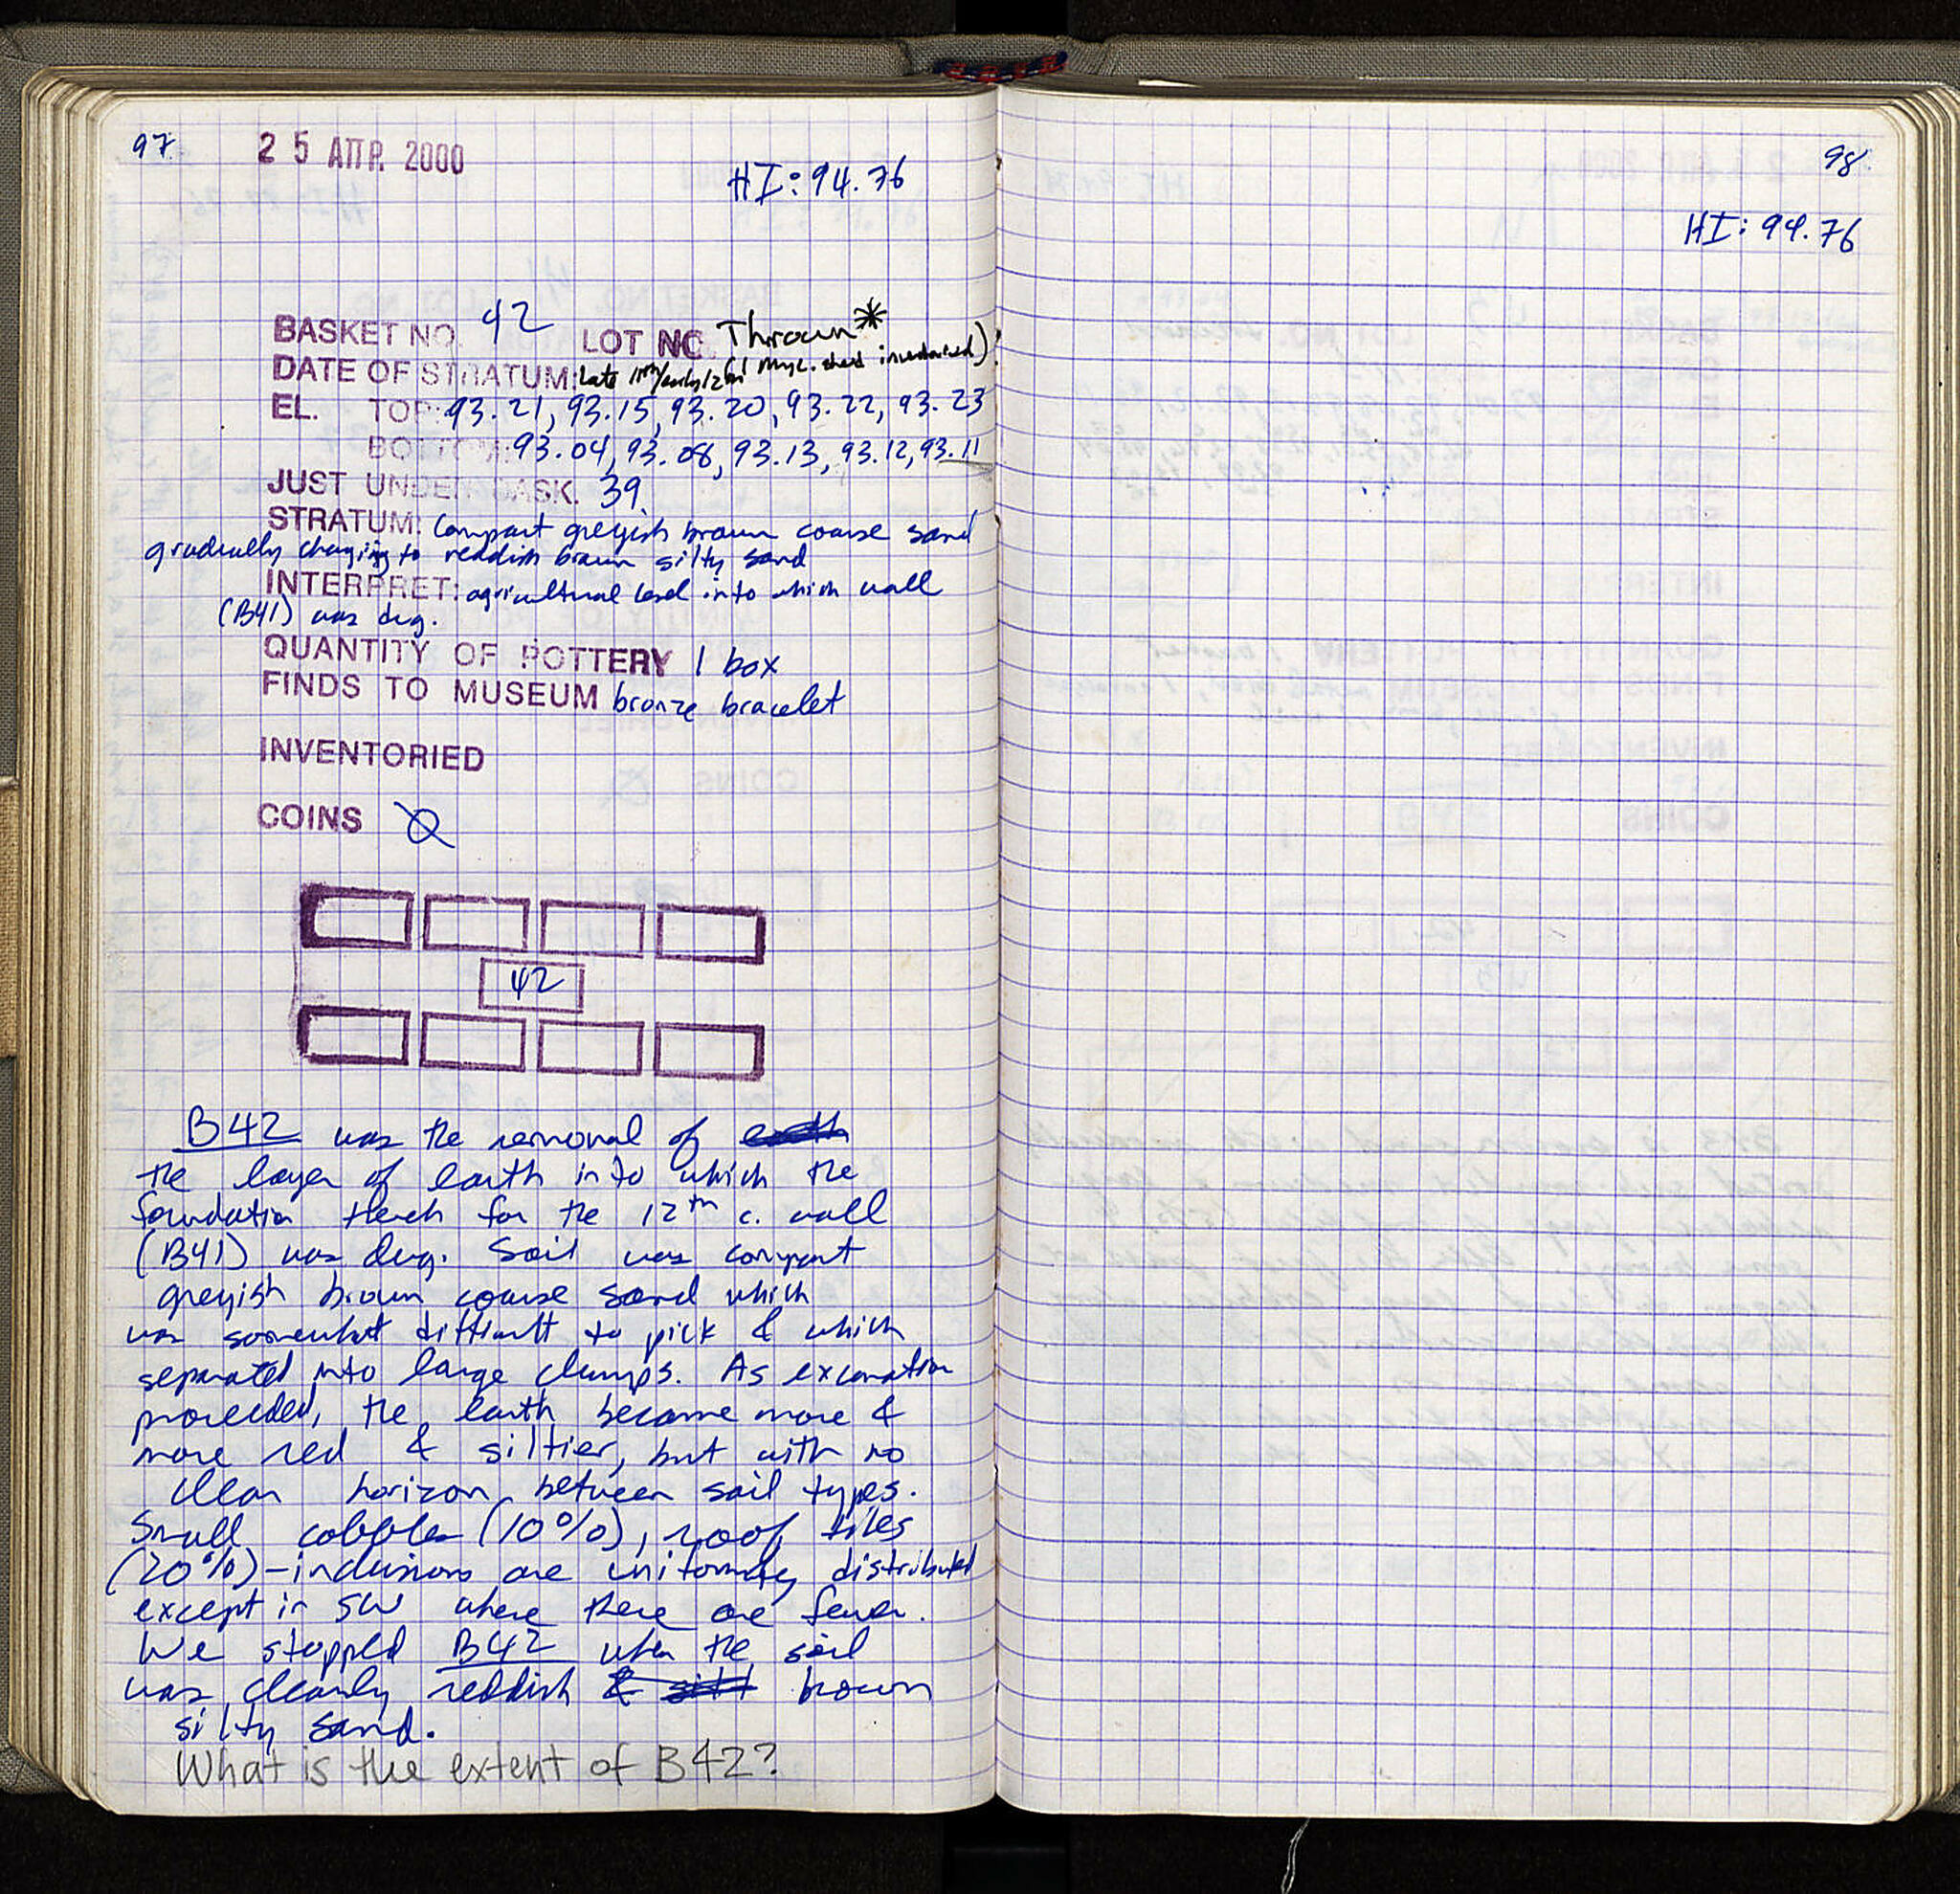 97.
25 ΑΠΡ. 2000
HI: 94.76
BASKET NO. 42 LOT NO. Thrown*
DATE OF STRATUM: Late 11th/early 12th (1 Myc. sherd inventoried)
EL. TOP: 93.21, 93.15, 93.20, 93.22, 93.23
BOTTOM: 93.04, 93.08, 93.13, 93.12, 93.11
JUST UNDER BASK. 39
STRATUM: Compact greyish brown coarse sand
gradually changing to reddish brown silty sand
INTERPRET: agricultural level into which wall
(B41) was dug.
QUANTITY OF POTTERY 1 box
FINDS TO MUSEUM bronze bracelet
INVENTORIED
COINS Ø
42
B42 was the removal of earth
the layer of earth into which the
foundation trench for the 12th c. wall
(B41) was dug. Soil was compact
greyish brown coarse sand which
was somewhat difficult to pick & which
separated into large clumps. As excavation
proceeded, the earth became more &
more red & siltier, but with no
clear horizon between soil types.
Small cobbles (10%), roof tiles
(20%) - inclusions are uniformly distributed
except in SW where there are fewer.
We stopped B42 when the soil
was clearly reddish & silt brown
silty sand.
What is the extent of B42?
98.
HI: 94.76